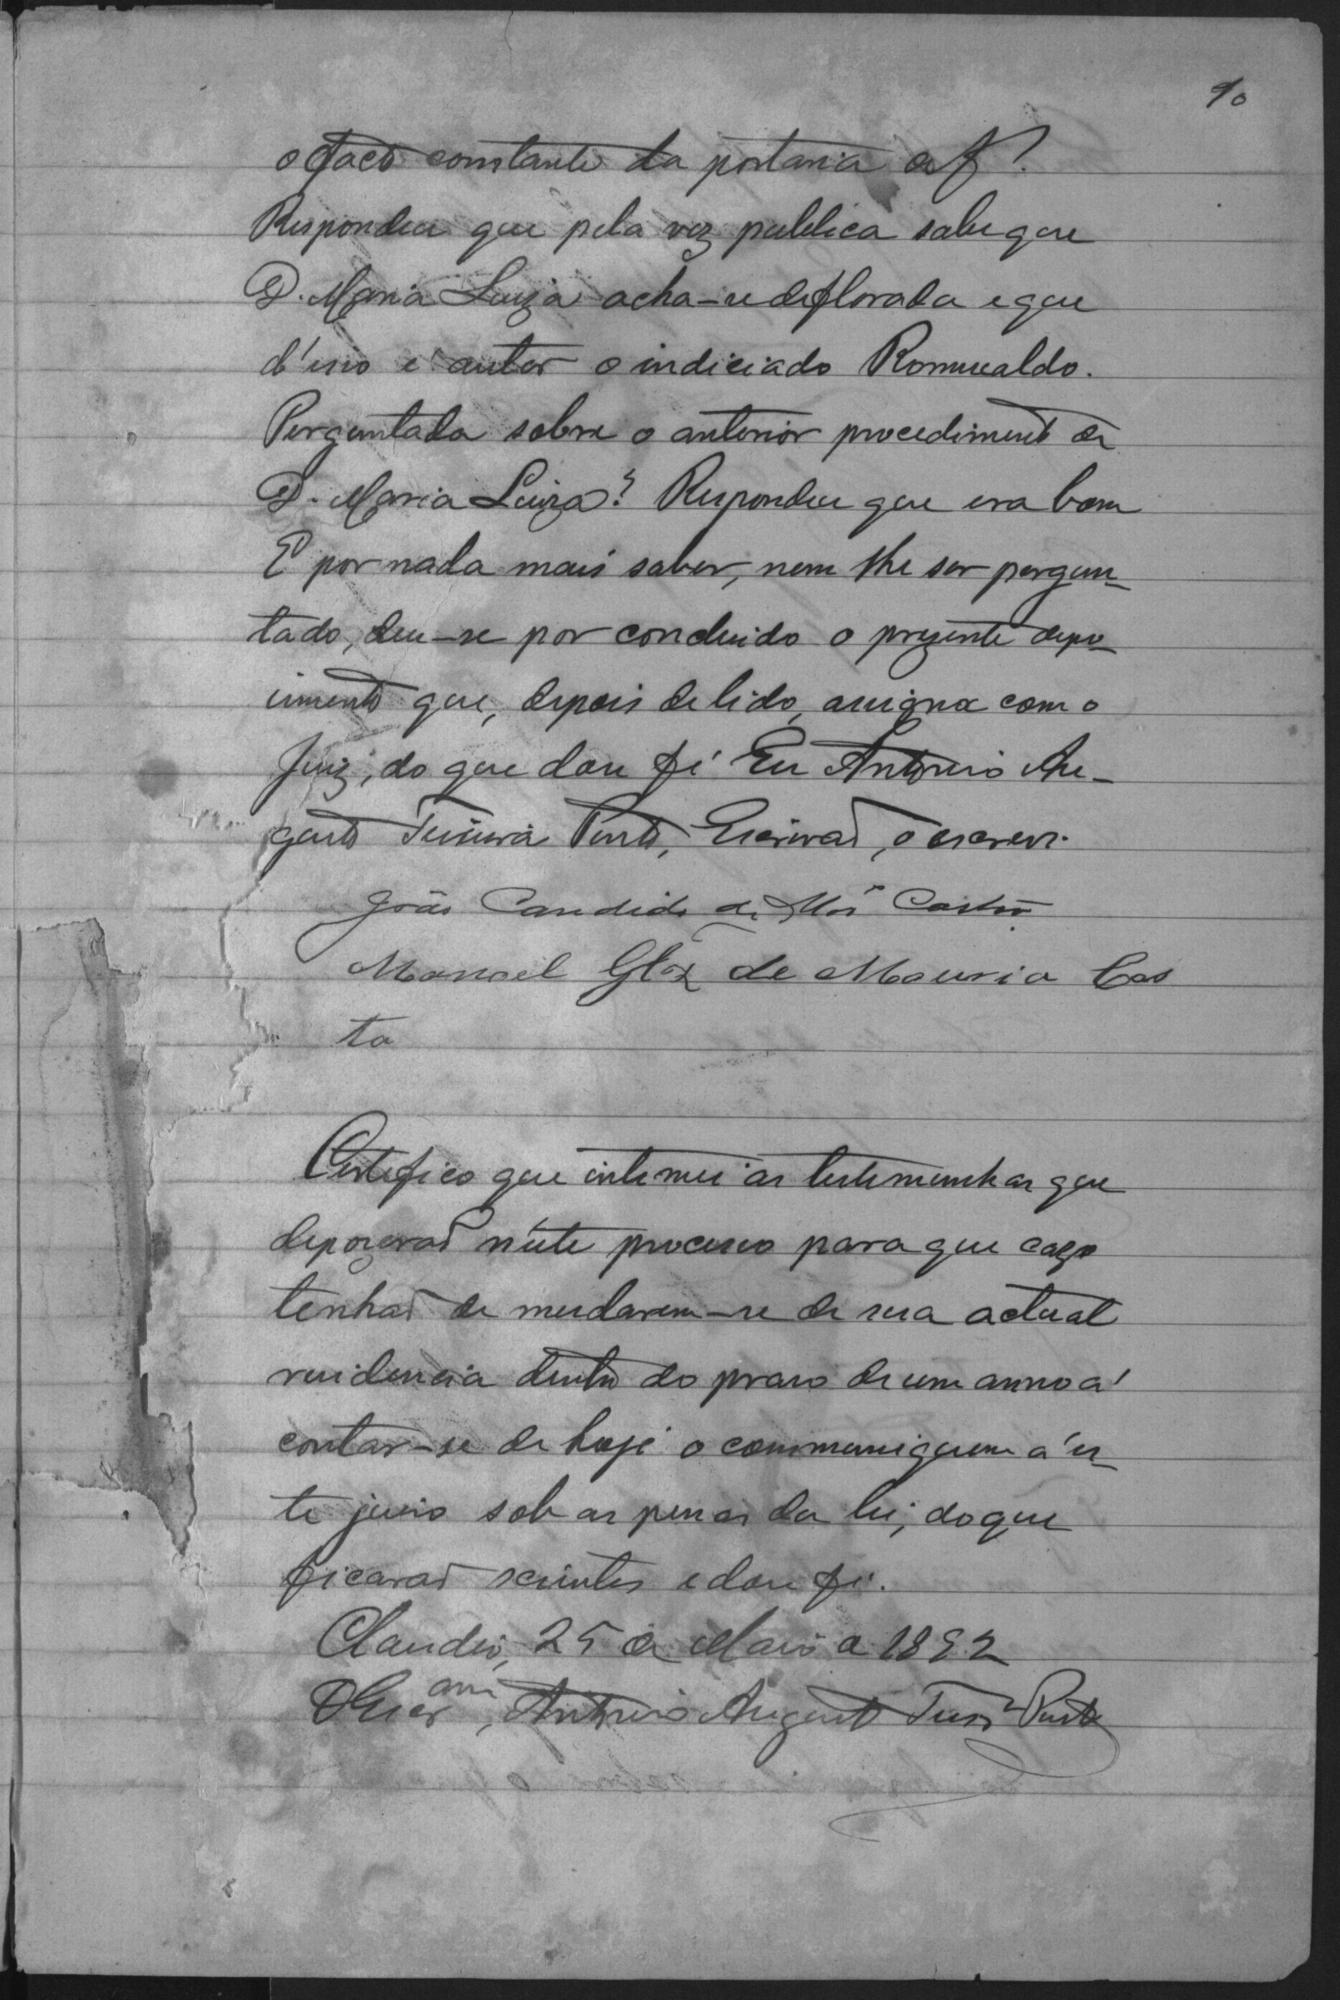 10
o facto constante da portaria a f?
Respondeu que pela voz publica sabe que
D. Maria Luiza acha-se deflorada e que
d'isso é autor o indiciado Romualdo.
Perguntada sobre o anterior procedimento de
D. Maria Luiza? Respondeu que era bom
E por nada mais saber, nem lhe ser pergun-
tado, deu-se por concluido o prezente depo-
imento que, depois de lido, assigna com o
Juiz, do que dou fé Eu Antonio Au-
gusto Teixeira Porto, Escrivaõ, o escrevi.
João Candido de Castro
Manoel Glz de Moura Cos
ta
Certifico que intimei as testemunhas que
depozeraõ n'este processo para que cazo
tenhaõ de mudarem-se de sua actual
residencia dentro do praso de um anno á
contar-se de hoje o communiquem á es-
te juiso sob as penas da lei, do que
ficaraõ scientes e dou fé.
Claudio, 25 de Maio de 1892
O Escr.am, Antonio Augusto Teixr.a Porto